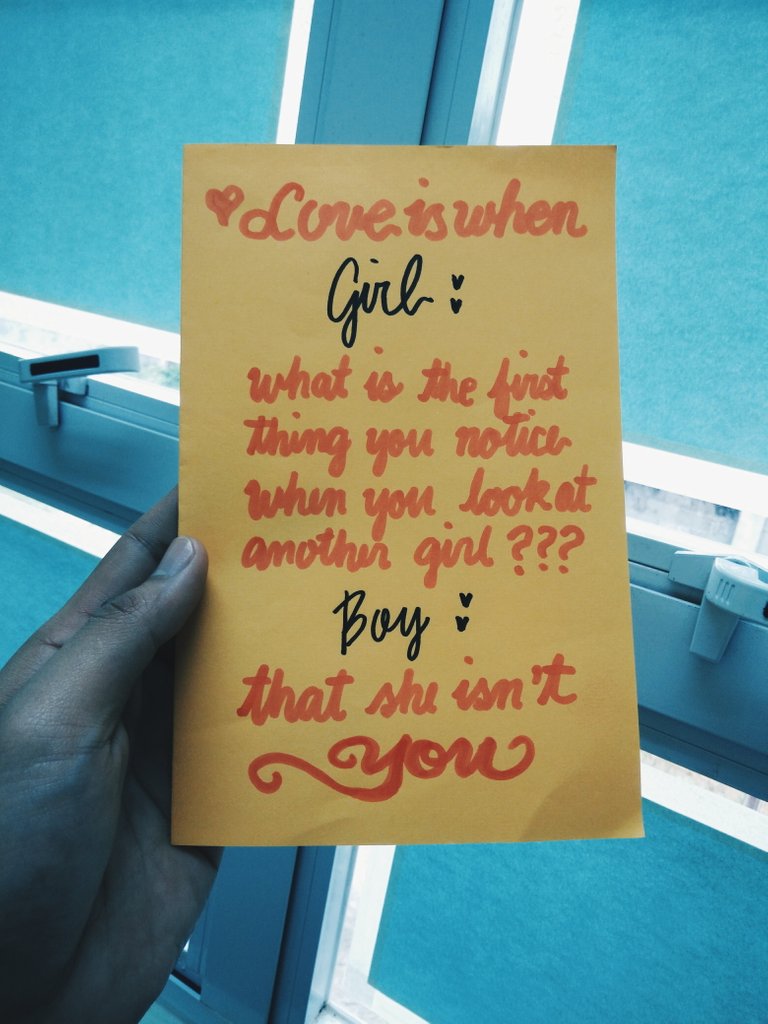 Love is when
Girl :
what is the first
thing you notice
when you look at
another girl ???
Boy :
that she isn't
you